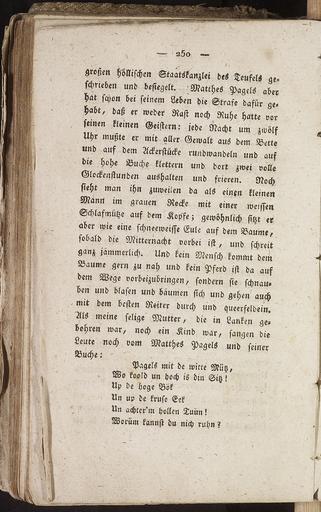 — 250 —
großen höllischen Staatskanzlei des Teufels ge-
schrieben und besiegelt. Matthes Pagels aber
hat schon bei seinem Leben die Strafe dafür ge-
habt, daß er weder Rast noch Ruhe hatte vor
seinen kleinen Geistern: jede Nacht um zwölf
Uhr mußte er mit aller Gewalt aus dem Bette
und auf dem Ackerstücke rundwandeln und auf
die hohe Buche klettern und dort zwei volle
Glockenstunden aushalten und frieren. Noch
sieht man ihn zuweilen da als einen kleinen
Mann im grauen Rocke mit einer weissen
Schlafmütze auf dem Kopfe; gewöhnlich sitzt er
aber wie eine schneeweisse Eule auf dem Baume,
sobald die Mitternacht vorbei ist, und schreit
ganz jämmerlich. Und kein Mensch kommt dem
Baume gern zu nah und kein Pferd ist da auf
dem Wege vorbeizubringen, sondern sie schnau-
ben und blasen und bäumen sich und gehen auch
mit dem besten Reiter durch und queerfeldein.
Als meine selige Mutter, die in Lanken ge-
bohren war, noch ein Kind war, sangen die
Leute noch vom Matthes Pagels und seiner
Buche:
Pagels mit de witte Mütz,
Wo koold un hoch is din Sitz!
Up de hoge Bök
Un up de kruse Eek
Un achter'm hollen Tuun!
Worüm kannst du nich ruhn?